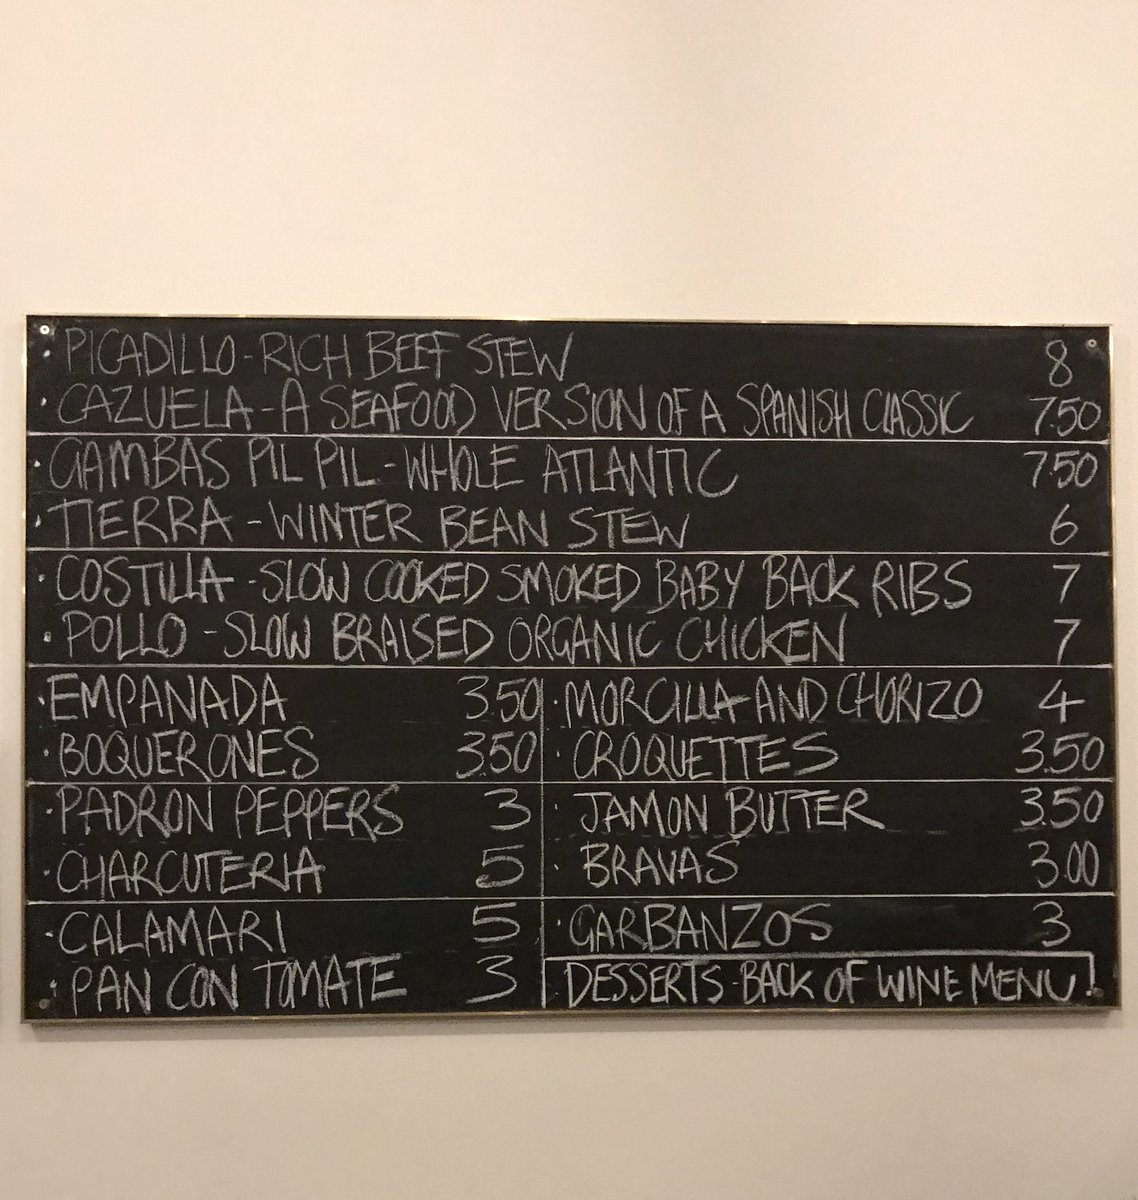 · PICADILLO - RICH BEEF STEW 8
· CAZUELA - A SEAFOOD VERSION OF A SPANISH CLASSIC 7.50
· GAMBAS PIL PIL - WHOLE ATLANTIC 7.50
· TIERRA - WINTER BEAN STEW 6
· COSTILLA - SLOW COOKED SMOKED BABY BACK RIBS 7
· POLLO - SLOW BRAISED ORGANIC CHICKEN 7
· EMPANADA 3.50
· BOQUERONES 3.50
· PADRON PEPPERS 3
· CHARCUTERIA 5
· CALAMARI 5
· PAN CON TOMATE 3
· MORCILLA AND CHORIZO 4
· CROQUETTES 3.50
· JAMON BUTTER 3.50
· BRAVAS 3.00
· GARBANZOS 3
DESSERTS - BACK OF WINE MENU!